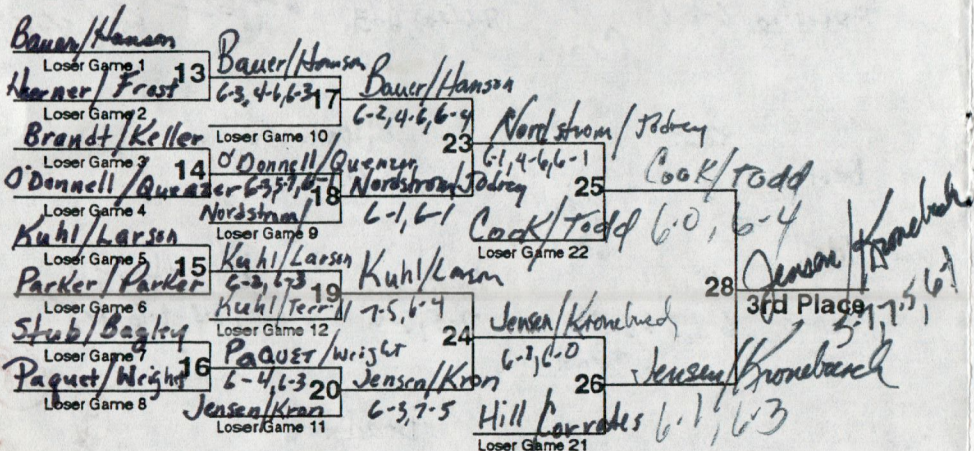 Bauer/Hanson
Loser Game 1
13
Hoerner/Frost
Loser Game 2
Brandt/Keller
Loser Game 3
14
O'Donnell/Quenzer
Loser Game 4
Kuhl/Larson
Loser Game 5
15
Parker/Parker
Loser Game 6
Stub/Bagley
Loser Game 7
16
Paquet/Wright
Loser Game 8
Bauer/Hanson
6-3, 4-6, 6-3
17
Loser Game 10
O'Donnell/Quenzer
6-3, 5-7,
18
Nordstrom/
Loser Game 9
Kuhl/Larson
6-2, 6-3
19
Kuhl/Terri
Loser Game 12
Paquet/Wright
6-4, 6-3
20
Jensen/Kron
Loser Game 11
Bauer/Hanson
6-2, 4-6, 6-4
23
Nordstrom/Todrey
6-1, 6-1
Kuhl/Larson
7-5, 6-4
24
Jensen/Kron
6-3, 7-5
Nordstrom/Todrey
6-1, 4-6, 6-1
25
Cook/Todd
Loser Game 22
Jensen/Kronebusch
6-0
26
Hill/Corrales
Loser Game 21
Cook/Todd
6-0, 6-4
28
Jensen/Kronebusch
6-1, 6-3
Jensen/Kronebusch
3rd Place
5-7, 7-5, 6-1